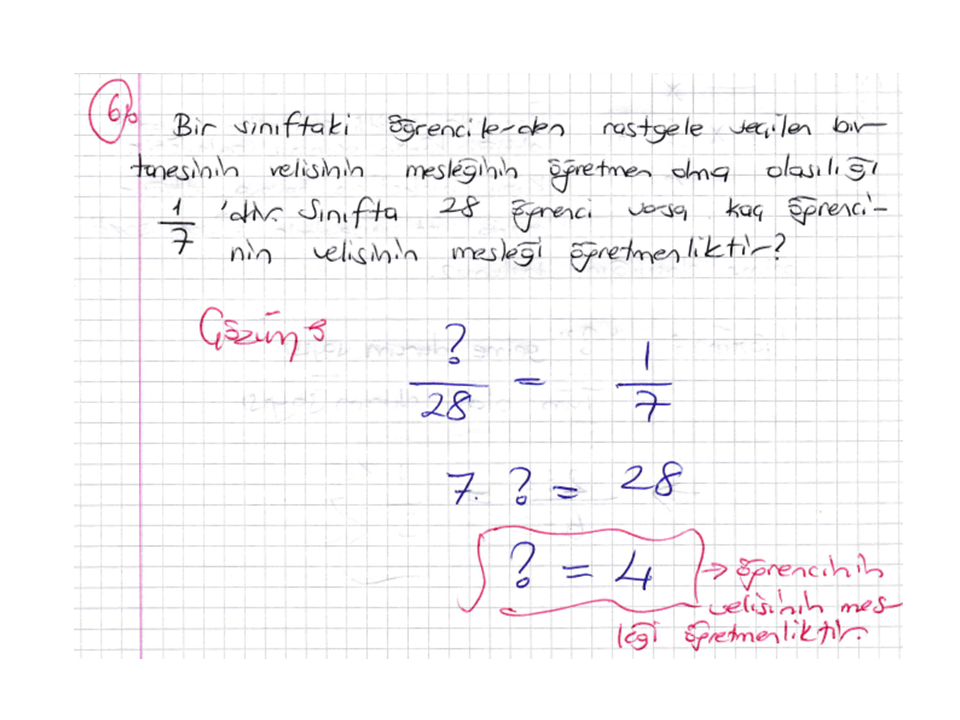 6) Bir sınıftaki öğrencilerden rastgele seçilen bir
tanesinin velisinin mesleğinin öğretmen olma olasılığı
1/7 'dir. Sınıfta 28 öğrenci varsa kaç öğrenci-
nin velisinin mesleği öğretmenliktir?
Çözüm:
?/28 = 1/7
7. ? = 28
? = 4 → öğrencinin
velisinin mes-
leği öğretmenliktir.